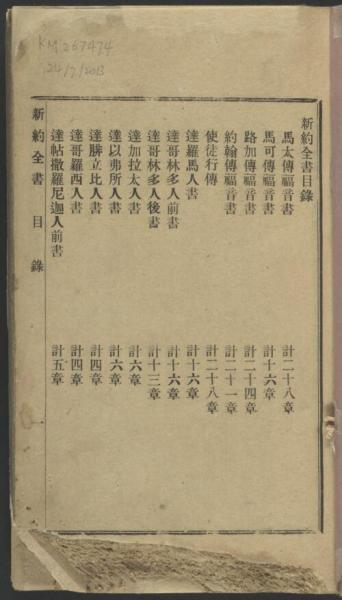 KM 267474
24/7/2013
新約全書目錄
馬太傳福音書 計二十八章
馬可傳福音書 計十六章
路加傳福音書 計二十四章
約翰傳福音書 計二十一章
使徒行傳 計二十八章
達羅馬人書 計十六章
達哥林多人前書 計十六章
達哥林多人後書 計十三章
達加拉太人書 計六章
達以弗所人書 計六章
達腓立比人書 計四章
達哥羅西人書 計四章
達帖撒羅尼迦人前書 計五章
新約全書 目錄